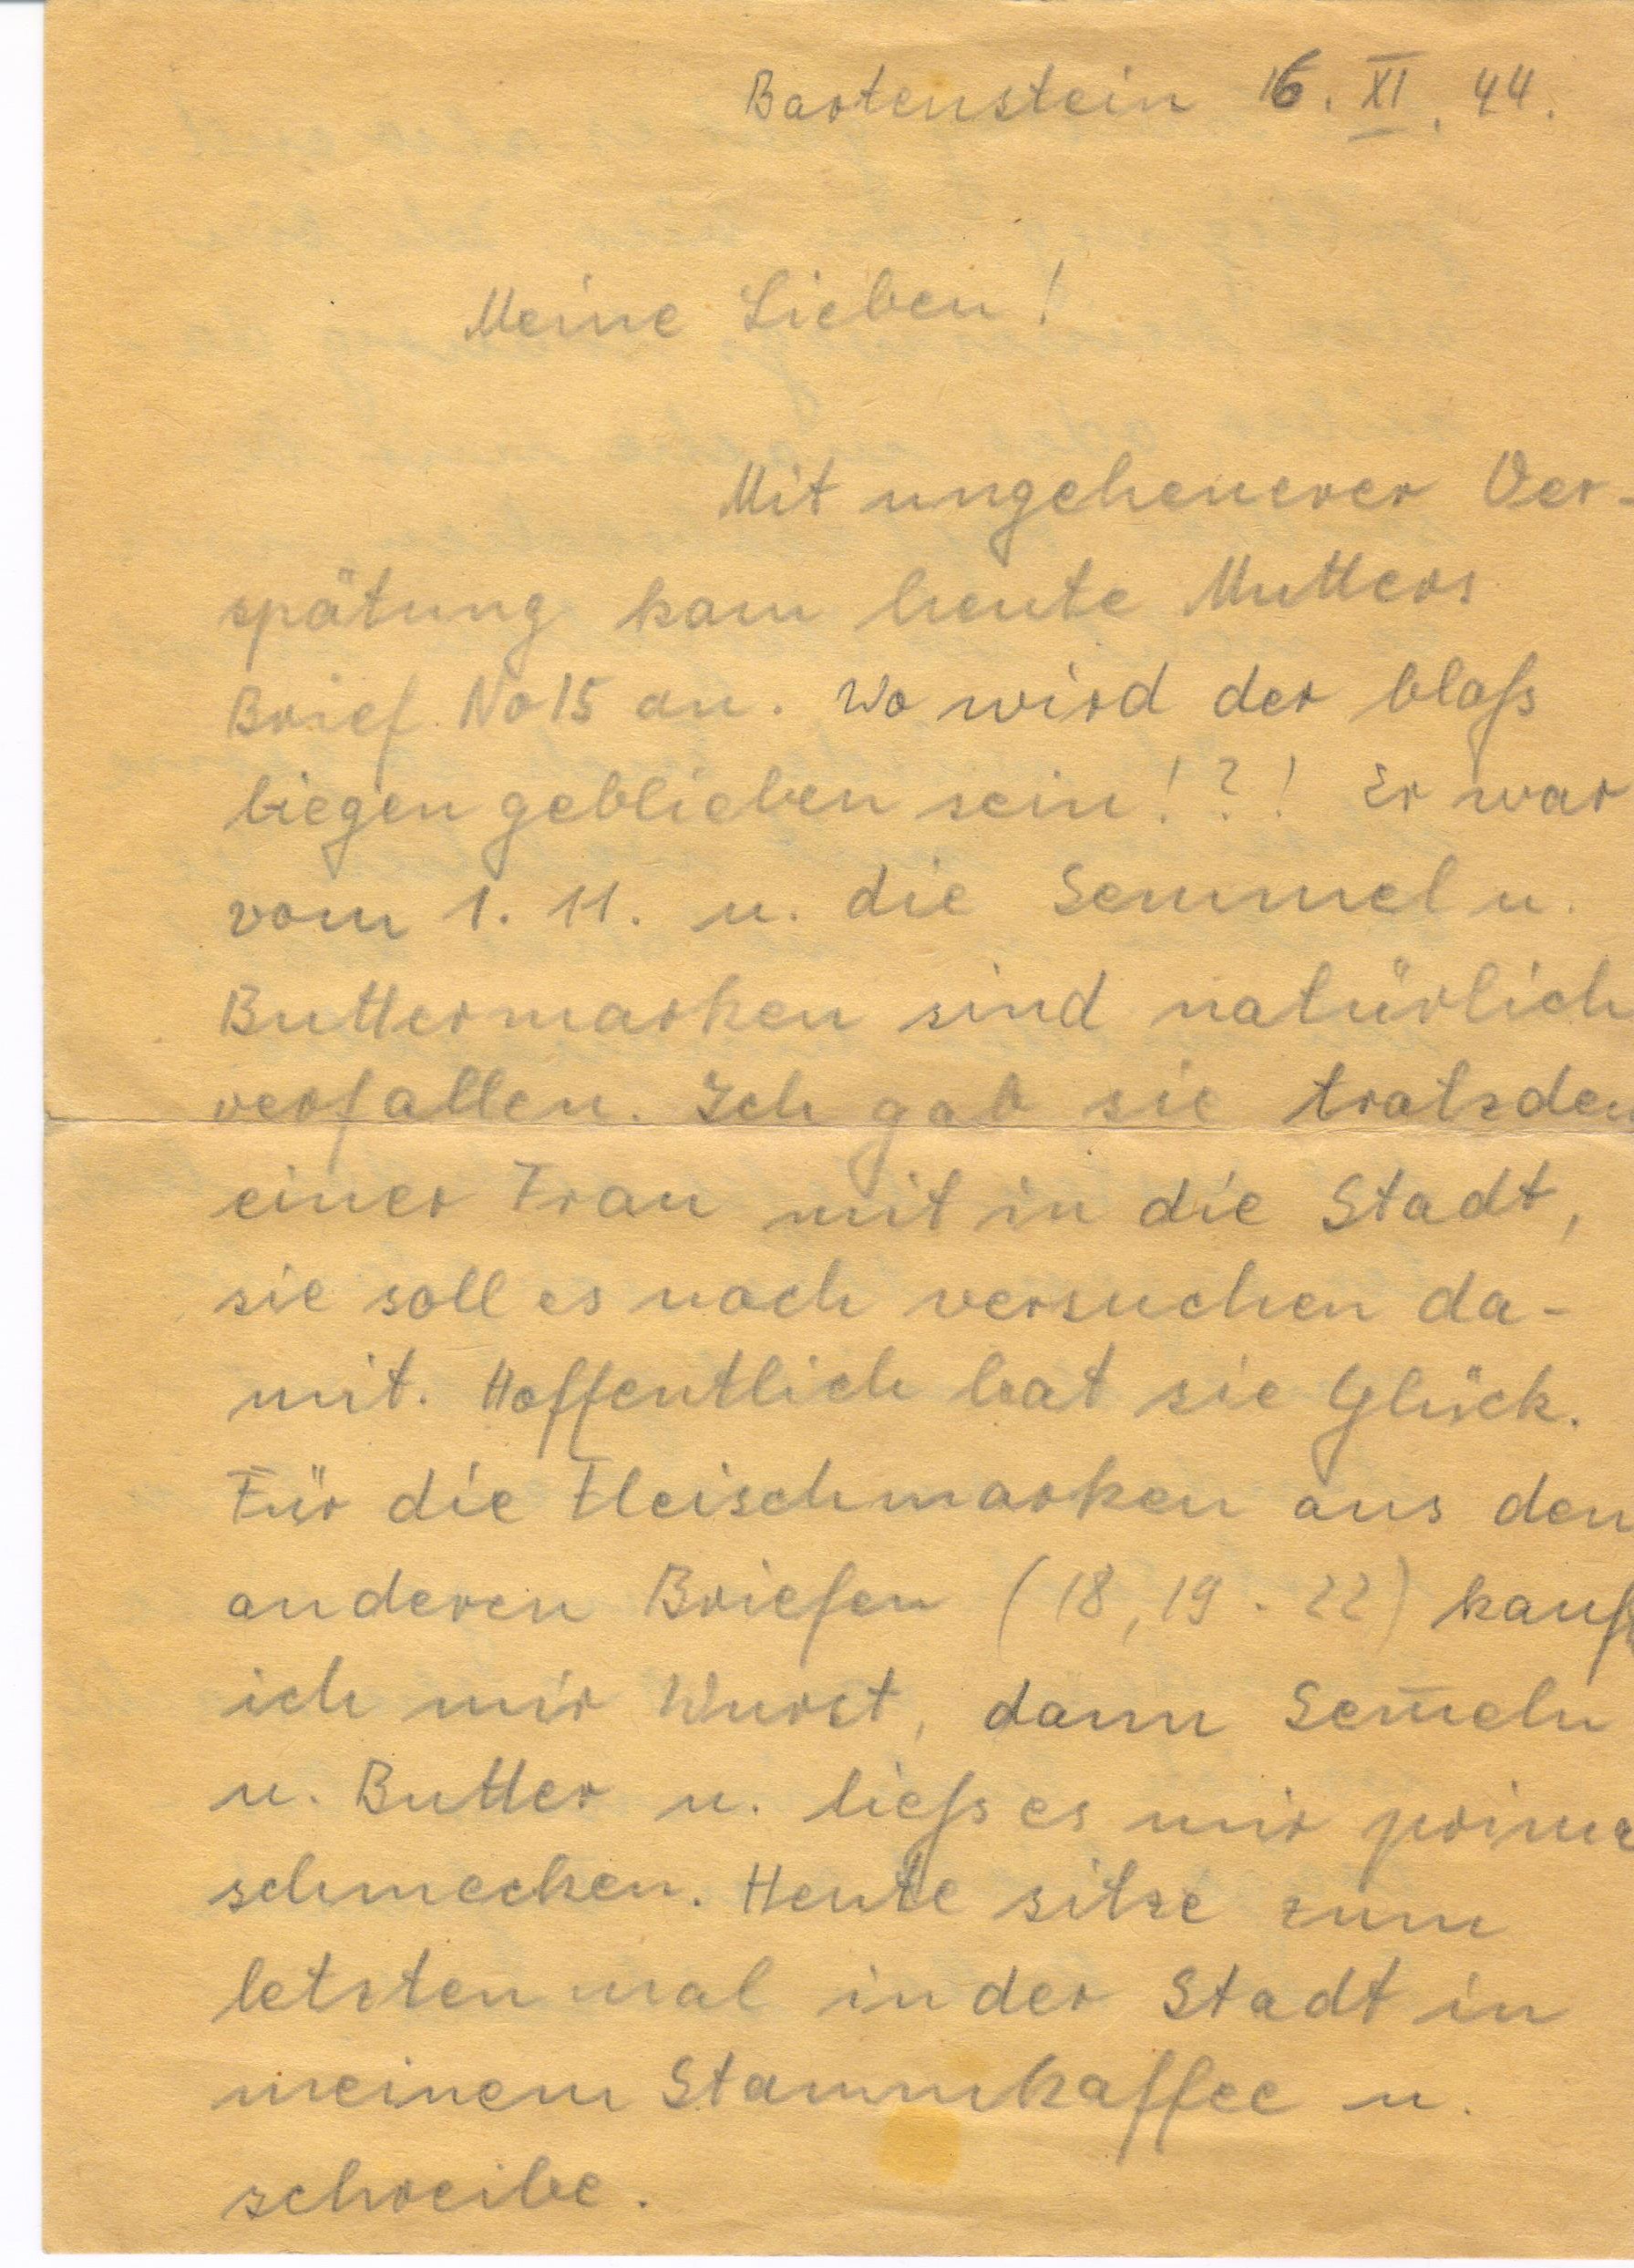 Bartenstein 16. XI. 44.
Meine Lieben!
Mit ungeheuerer Ver-
spätung kam heute Mutters
Brief No 15 an. Wo wird der bloß
liegen geblieben sein!?! Er war
vom 1. 11. u. die Semmel u.
Buttermarken sind natürlich
verfallen. Ich gab sie trotzdem
einer Frau mit in die Stadt,
sie soll es noch versuchen da-
mit. Hoffentlich hat sie Glück.
Für die Fleischmarken aus den
anderen Briefen (18, 19 - 22)
ich mir Wurst, dann Sem̄eln
u. Butter u. ließ es mir prima
schmecken. Heute sitze zum
letzten mal in der Stadt in
meinem Stammkaffee u.
schreibe.